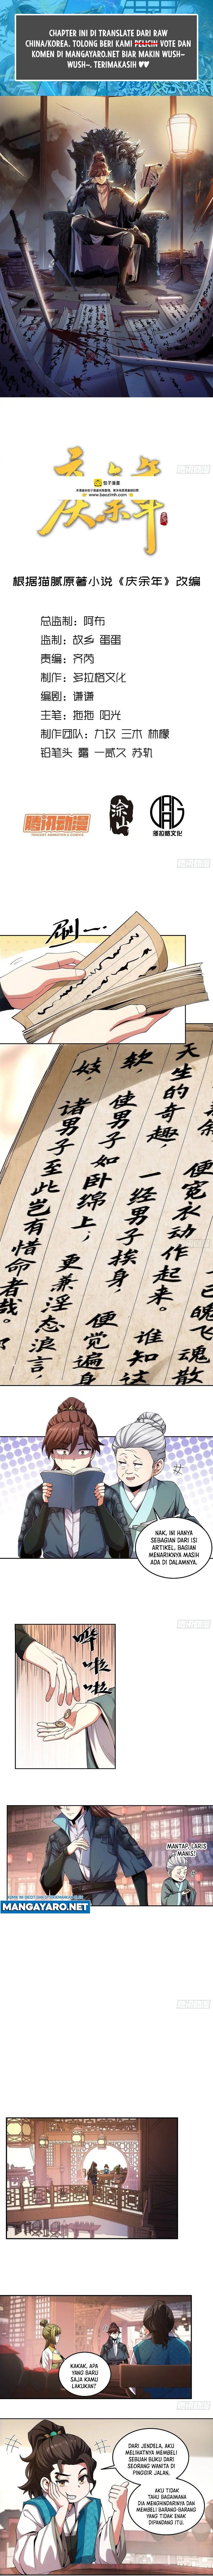 CHAPTER INI DI TRANSLATE DARI RAW
CHINA/KOREA. TOLONG BERI KAMI
VOTE DAN
KOMEN DI MANGAYARO.NET BIAR MAKIN WUSH~
WUSH~. TERIMAKASIH ♥♥
庆余年
包子漫画
👉 www.baozimh.com 👈
根据猫腻原著小说《庆余年》改编
总监制：阿布
监制：故乡 蛋蛋
责编：齐芮
制作：多拉格文化
编剧：谦谦
主笔：拖拖 阳光
制作团队：九玖 三木 林檬
铅笔头 露 一贰又 苏轨
腾讯动漫
TENCENT ANIMATION & COMICS
多拉格文化
刷一
天生的奇趣，
便宽衣动作起来。
一经男子挨身，
谁知这
便觉遍身
软，
使男子如卧绵上，
更兼淫态浪言，
妓，
诸男子至此岂有惜命者哉。
已魄飞魂散
NAK, INI HANYA
SEBAGIAN DARI ISI
ARTIKEL, BAGIAN
MENARIKNYA MASIH
ADA DI DALAMNYA.
哗啦啦
MANTAP, LARIS
MANIS!
MANGAYARO.NET
KAKAK, APA
YANG BARU
SAJA KAMU
LAKUKAN?
DARI JENDELA, AKU
MELIHATNYA MEMBELI
SEBUAH BUKU DARI
SEORANG WANITA DI
PINGGIR JALAN.
AKU TIDAK
TAHU BAGAIMANA
DIA MENGHINDARINYA DAN
MEMBELI BARANG-BARANG
YANG TIDAK ENAK
DIPANDANG ITU.